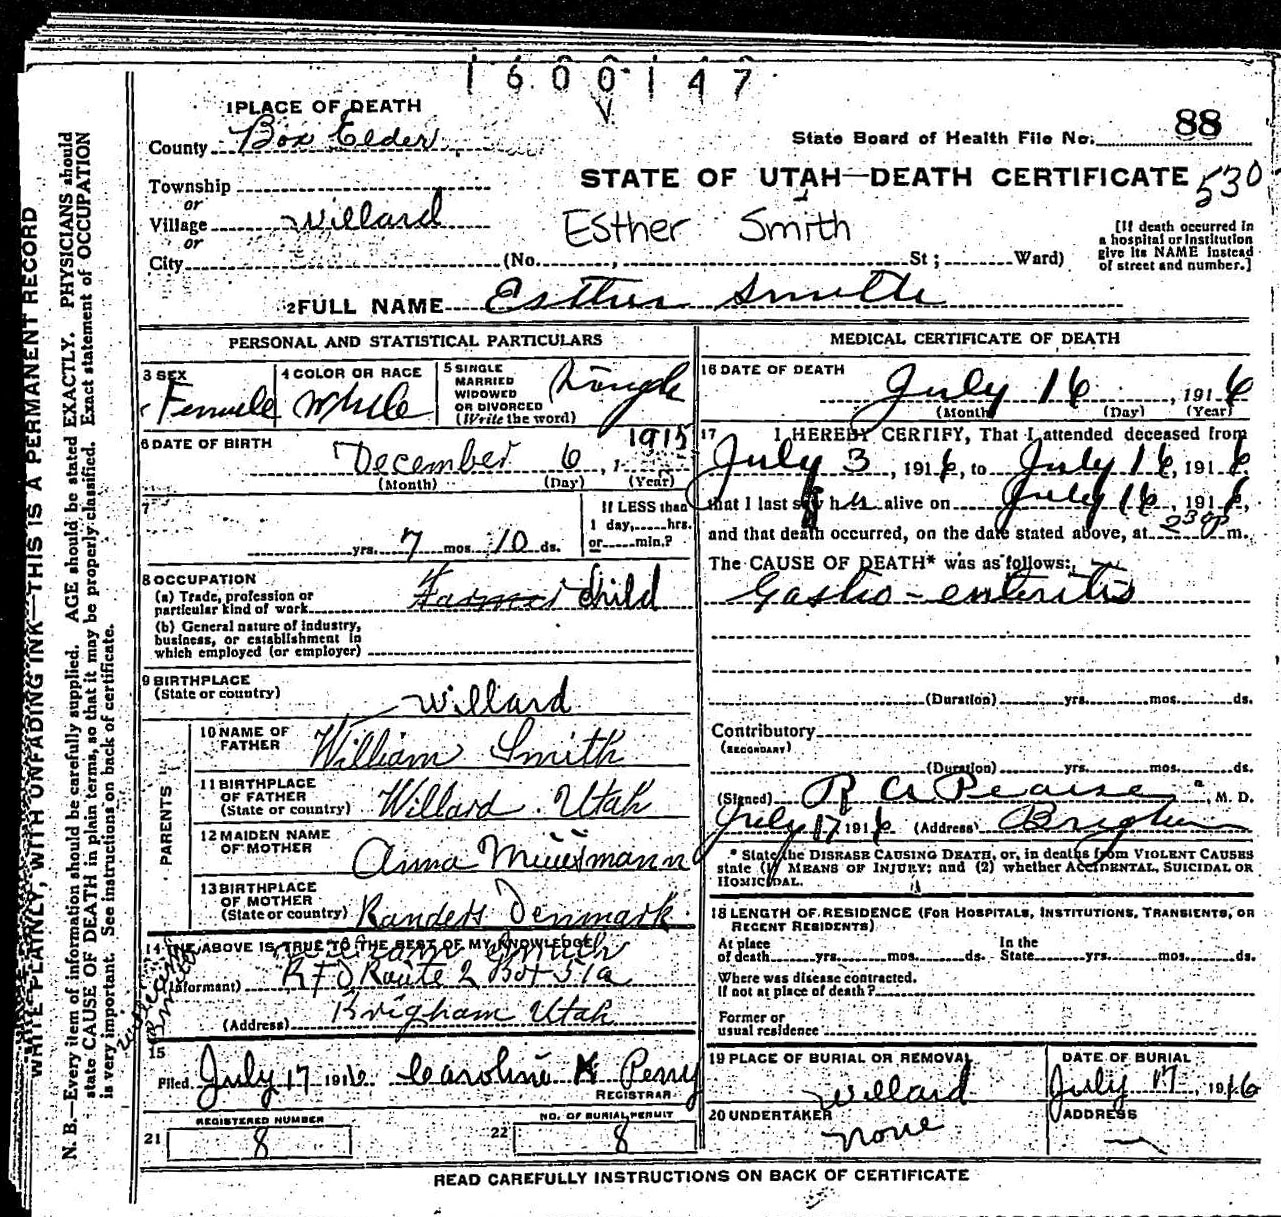 1600147
1 PLACE OF DEATH
County Box Elder
State Board of Health File No. 88
Township
or
Village Willard
or
City (No. , St; Ward)
STATE OF UTAH—DEATH CERTIFICATE 530
Esther Smith
[If death occurred in
a hospital or institution
give its NAME instead
of street and number.]
2 FULL NAME Esther Smith
PERSONAL AND STATISTICAL PARTICULARS
3 SEX Female
4 COLOR OR RACE White
5 SINGLE
MARRIED
WIDOWED
OR DIVORCED
(Write the word) Single
6 DATE OF BIRTH
December 6, 1915
(Month) (Day) (Year)
7
yrs. 7 mos. 10 ds.
If LESS than
1 day, hrs.
or min.?
8 OCCUPATION
(a) Trade, profession or
particular kind of work Farmer Child
(b) General nature of industry,
business, or establishment in
which employed (or employer)
9 BIRTHPLACE
(State or country) Willard
PARENTS
10 NAME OF
FATHER William Smith
11 BIRTHPLACE
OF FATHER
(State or country) Willard Utah
12 MAIDEN NAME
OF MOTHER Anna
13 BIRTHPLACE
OF MOTHER
(State or country) Randers Denmark
14 THE ABOVE IS TRUE TO THE BEST OF MY KNOWLEDGE
William Smith
(Informant) RFD Route 2 Box 51a
(Address) Brigham Utah
15
Filed July 17 1916 Caroline K Perry
REGISTRAR
REGISTERED NUMBER
21 8
NO. OF BURIAL PERMIT
22 8
MEDICAL CERTIFICATE OF DEATH
16 DATE OF DEATH
July 16, 1916
(Month) (Day) (Year)
17 I HEREBY CERTIFY, That I attended deceased from
July 3, 1916, to July 16, 1916,
that I last saw her alive on July 16, 1916,
and that death occurred, on the date stated above, at 2 30 P m.
The CAUSE OF DEATH* was as follows:
Gastro-enteritis
(Duration) yrs. mos. ds.
Contributory
(SECONDARY)
(Duration) yrs. mos. ds.
(Signed) R A Pearse, M. D.
July 17 1916 (Address) Brigham
* State the DISEASE CAUSING DEATH, or, in deaths from VIOLENT CAUSES
state (1) MEANS OF INJURY; and (2) whether ACCIDENTAL, SUICIDAL OR
HOMICIDAL.
18 LENGTH OF RESIDENCE (FOR HOSPITALS, INSTITUTIONS, TRANSIENTS, OR
RECENT RESIDENTS)
At place
of death yrs. mos. ds.
In the
State yrs. mos. ds.
Where was disease contracted.
If not at place of death?
Former or
usual residence
19 PLACE OF BURIAL OR REMOVAL
Willard
DATE OF BURIAL
July 17, 1916
20 UNDERTAKER
none
ADDRESS
READ CAREFULLY INSTRUCTIONS ON BACK OF CERTIFICATE
WRITE PLAINLY, WITH UNFADING INK—THIS IS A PERMANENT RECORD
N. B.—Every item of information should be carefully supplied. AGE should be stated EXACTLY. PHYSICIANS should
state CAUSE OF DEATH in plain terms, so that it may be properly classified. Exact statement of OCCUPATION
is very important. See instructions on back of certificate.